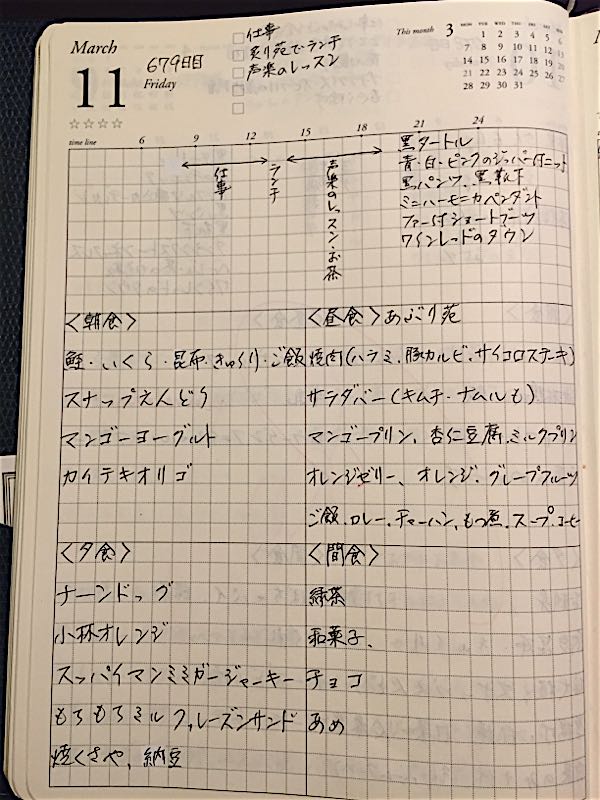 March
11
679日目
Friday
仕事
炙り苑でランチ
声楽のレッスン
This month 3
MON TUE WED THU FRI SAT SUN
1 2 3 4 5 6
7 8 9 10 11 12 13
14 15 16 17 18 19 20
21 22 23 24 25 26 27
28 29 30 31
☆☆☆☆
time line 6 9 12 15 18 21 24
仕事
ランチ
声楽のレッスン・お茶
黒タートル
青・白・ピンクのジッパー付ニット
黒パンツ、黒靴下
ミニハーモニカペンダント
ファー付ショートブーツ
ワインレッドのダウン
<朝食>
鮭・いくら・昆布・きゅうり・ご飯
スナップえんどう
マンゴーヨーグルト
カイテキオリゴ
<昼食>あぶり苑
焼肉(ハラミ、豚カルビ、サイコロステーキ)
サラダバー(キムチ・ナムルも)
マンゴープリン、杏仁豆腐、ミルクプリン
オレンジゼリー、オレンジ、グレープフルーツ
ご飯、カレー、チャーハン、もつ煮、スープ、コーヒー
<夕食>
ナーンドッグ
小林オレンジ
スッパイマンミミガージャーキー
もちもちミルクレーズンサンド
焼くさや、納豆
<間食>
緑茶
和菓子、
チョコ
あめ